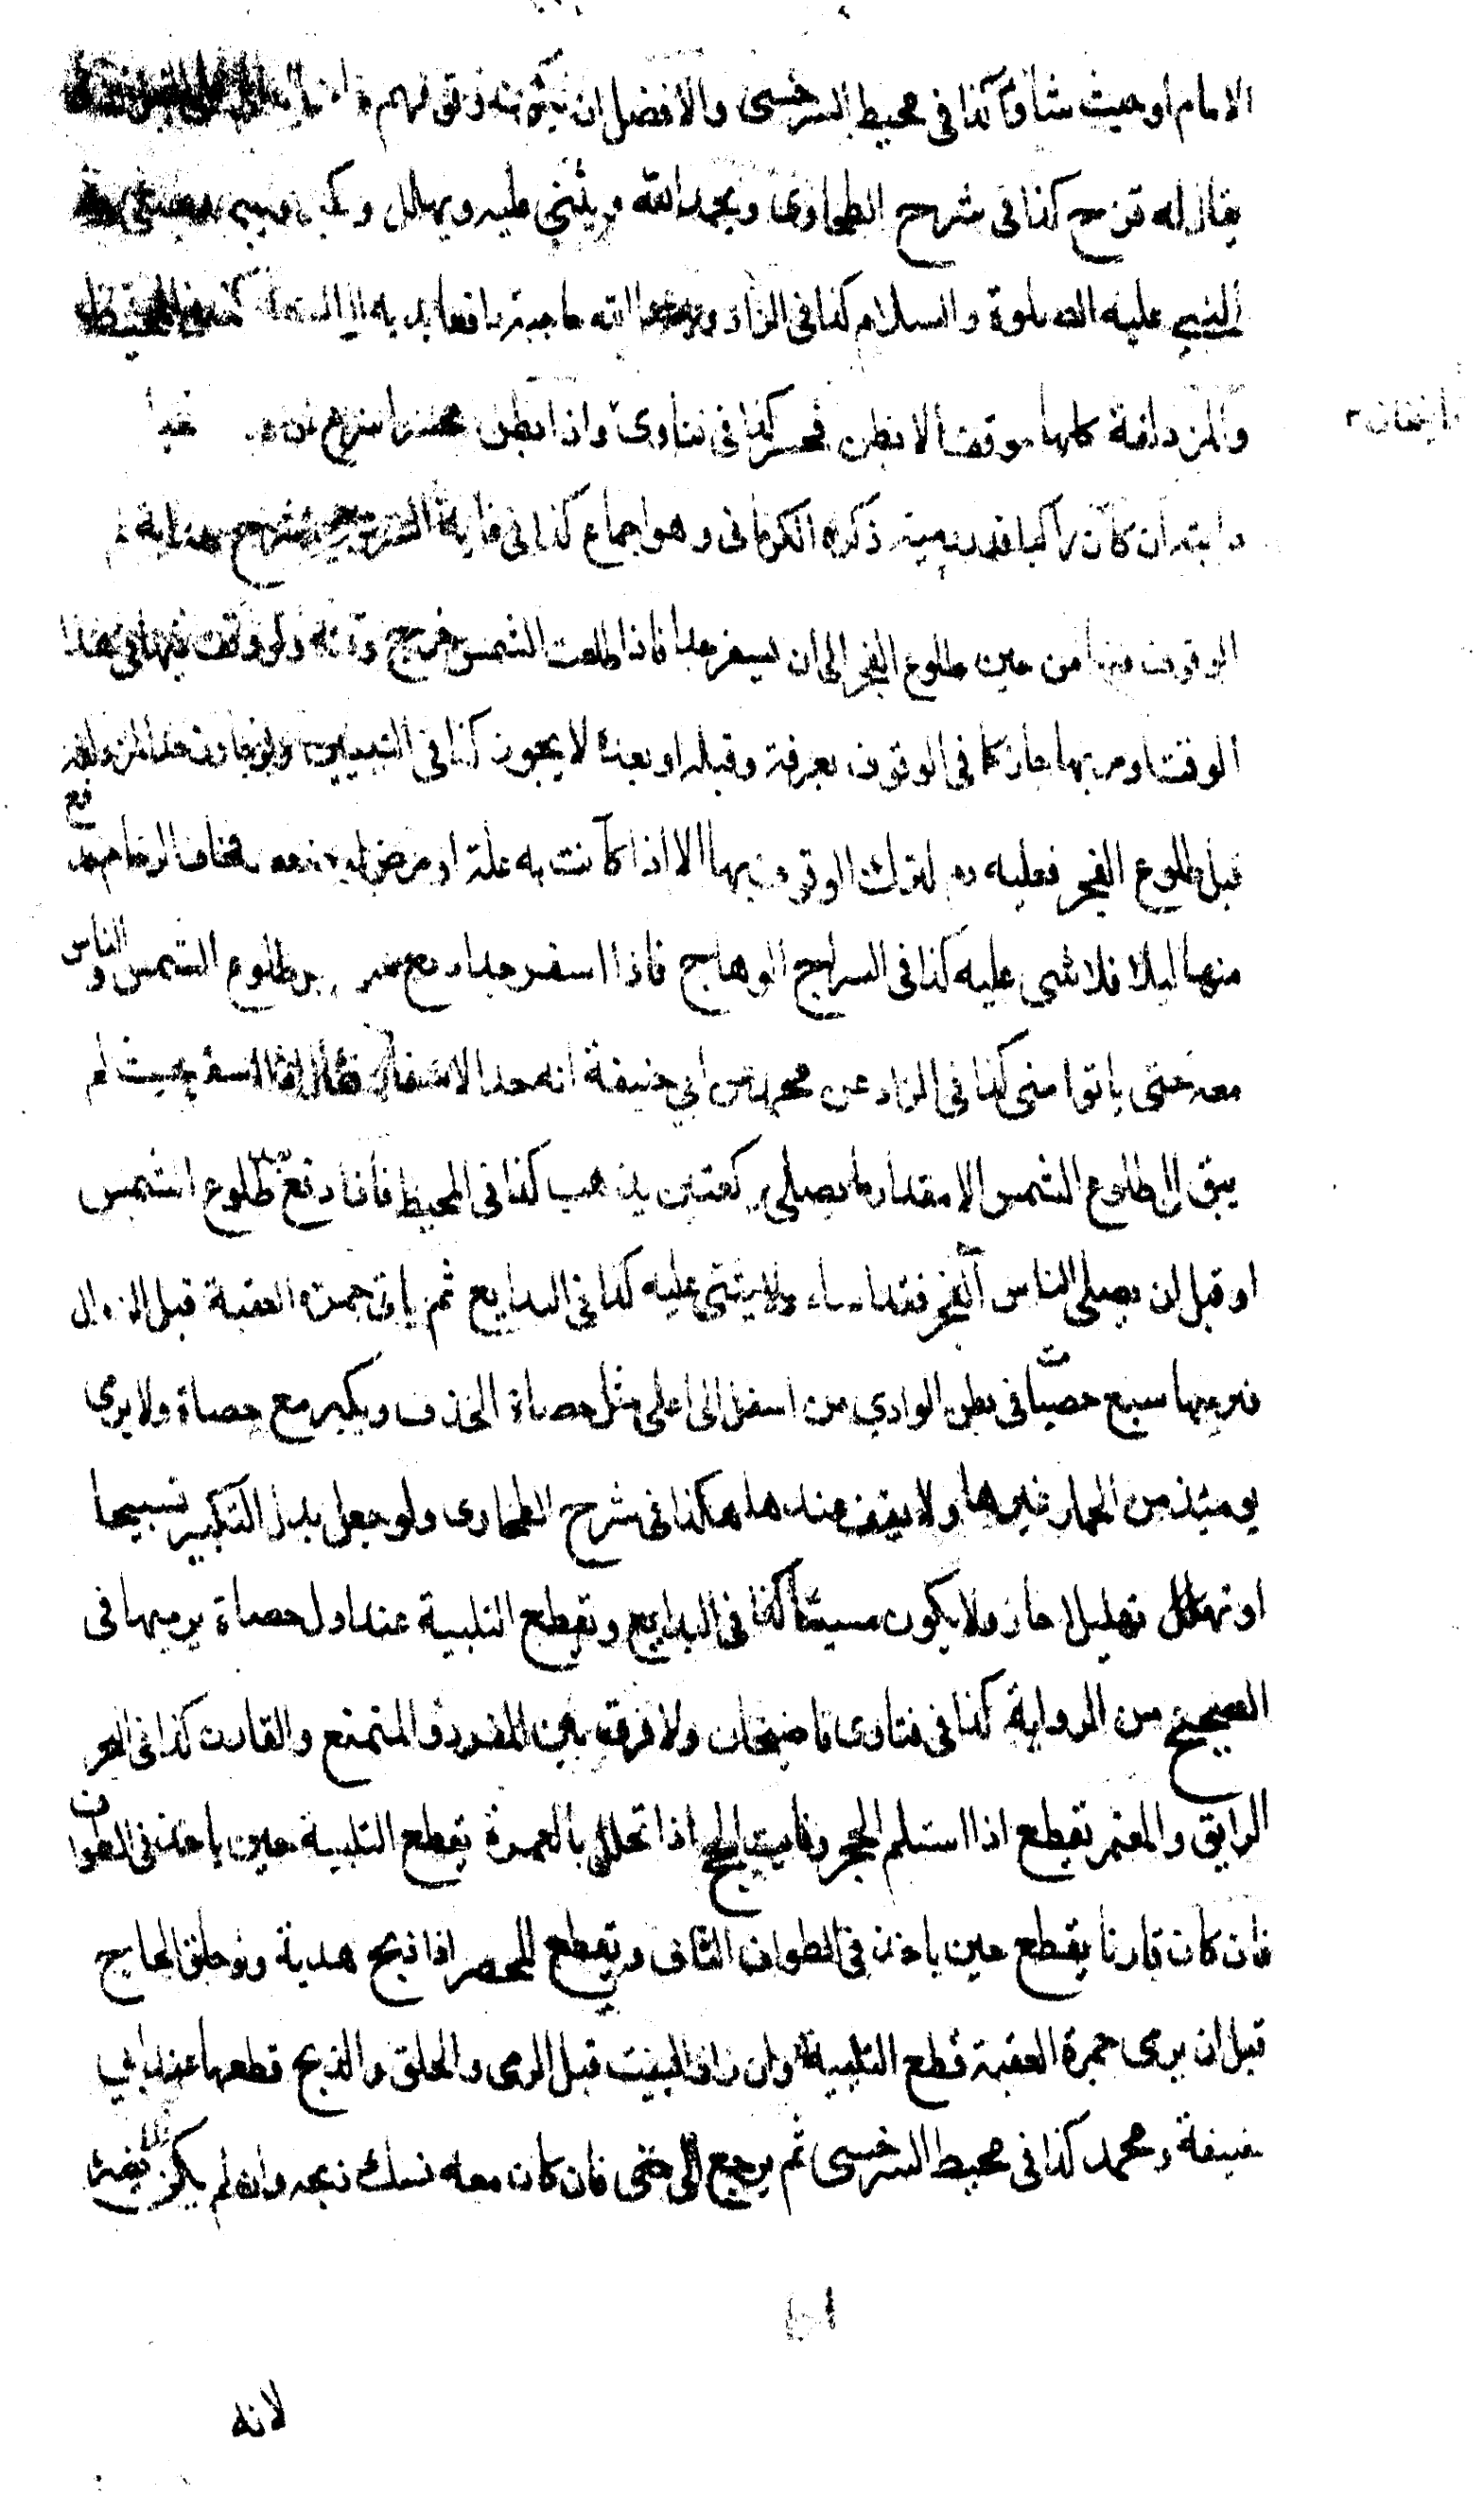 الامام او حيث شاؤا كذا فى محيط السرخسى والافضل ان يكون وقوفهم
يقال له قزح كذا فى شرح الطحاوى ويحمد الله ويثنى عليه ويهلل ويكبر ويصلى على
النبى عليه الصلوة والسلام كذا فى الزاد ويدعوا الله حاجته رافعا يديه الى السماء
والمزدلفة كلها موقف الا بطن محسر كذا فى فتاوى واذا بطن محسر اسرع
قاضيخان
دابته ان كان راكبا ذكره الكرمانى وهو اجماع كذا فى غاية السروجى شرح هداية ثم
الوقوف فيها من حين طلوع الفجر الى ان يسفر جدا فاذا طلعت الشمس خرج وقته ولو وقف فيها فى هذا
الوقت او مر بها جاز كما فى الوقوف بعرفة وقبله او بعده لا يجوز كذا فى التبيين ولو جاوز حد المزدلفة
قبل طلوع الفجر فعليه دم لترك الوقوف بها الا اذا كانت به علة او مرض او ضعف فخاف الزحام فدفع
منها ليلا فلا شى عليه كذا فى السراج الوهاج فاذا اسفر جدا دفع قبل طلوع الشمس والناس
معه حتى ياتوا منى كذا فى الزاد عن محمد عن ابى حنيفة انه حد الاسفار فقال اذا اسفر بحيث لم
يبق الى طلوع الشمس الا مقدار ما يصلى ركعتين يذهب كذا فى المحيط فاذا دفع بعد طلوع الشمس
او قبل ان يصلى الناس الفجر فقد اساء ولا شى عليه كذا فى البدايع ثم ياتى جمرة العقبة قبل الزوال
فيرميها سبع حصيات فى بطن الوادى من اسفل الى اعلى مثل حصاة الخذف ويكبر مع حصاة ولا يرمى
يومئذ من الجمار غيرها ولا يقف عندها هكذا فى شرح الطحاوى ولو جعل بدل التكبير تسبيحا
او تهلل تهليلا جاز ولا يكون مسيئا كذا فى البدايع وتقطع التلبية عند اول حصاة يرميها فى
الصحيح من الرواية كذا فى فتاوى قاضيخان ولا فرق بين المفرد والمتمتع والقارن كذا فى البحر
الرايق والمعتمر تقطع اذا استلم الحجر وفايت الحج اذا تحلل بالعمرة يقطع التلبية حين ياخذ فى الطواف
فان كان قارنا يقطع حين ياخذ فى الطواف الثانى ويقطع المحصر اذا ذبح هدية ولو حلق الحاج
قبل ان يرمى جمرة العقبة قطع التلبية وان زار البيت قبل الرمى والحلق والذبح قطعها عند ابى
حنيفة ومحمد كذا فى محيط السرخسى ثم يرجع الى منى فان كان معه نسك ذبحه وان لم يكن لا يضره
لانه